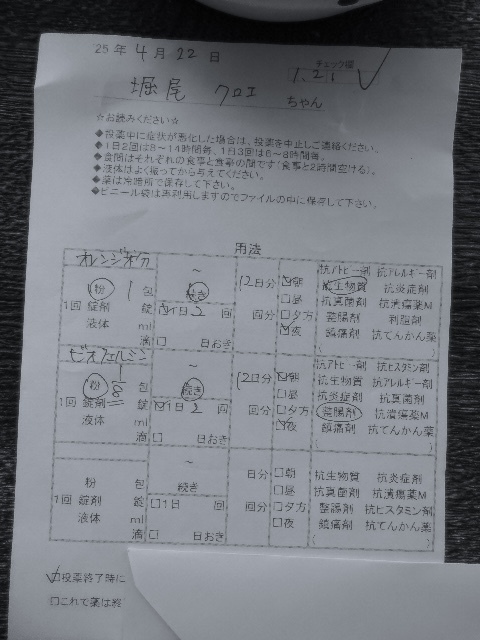 25年 4月 22日
チェック欄
1, 2, 1
堀尾 クロエ ちゃん
☆お読みください☆
◆投薬中に症状が悪化した場合は、投薬を中止しご連絡ください。
◆1日2回は8～14時間毎、1日3回は6～8時間毎。
◆食間はそれぞれの食事と食事の間です（食事と2時間空ける）。
◆液体はよく振ってから与えてください。
◆薬は冷暗所で保存して下さい。
◆ビニール袋は再利用しますのでファイルの中に保存して下さい。
用法
～ 12日分 ☑朝 抗アトピー剤 抗アレルギー剤
粉 1 包 続き □昼 抗生物質 抗炎症剤
1回 錠剤 錠 ☑1日 2 回 回分 □夕方 抗真菌剤 抗潰瘍薬M
液体 ml ☑夜 整腸剤 利胆剤
滴 □ 日おき 鎮痛剤 抗てんかん薬
( )
ビオフェルミン ～ 12日分 ☑朝 抗アトピー剤 抗ヒスタミン剤
粉 1/8 包 続き □昼 抗生物質 抗アレルギー剤
1回 錠剤 錠 ☑1日 2 回 回分 □夕方 抗炎症剤 抗真菌剤
液体 ml ☑夜 整腸剤 抗潰瘍薬M
滴 □ 日おき 鎮痛剤 抗てんかん薬
( )
～ 日分 □朝 抗生物質 抗炎症剤
粉 包 続き □昼 抗真菌剤 抗潰瘍薬M
1回 錠剤 錠 □1日 回 回分 □夕方 整腸剤 抗ヒスタミン剤
液体 ml □夜 鎮痛剤 抗てんかん薬
滴 □ 日おき ( )
☑投薬終了時に
□これで薬は終